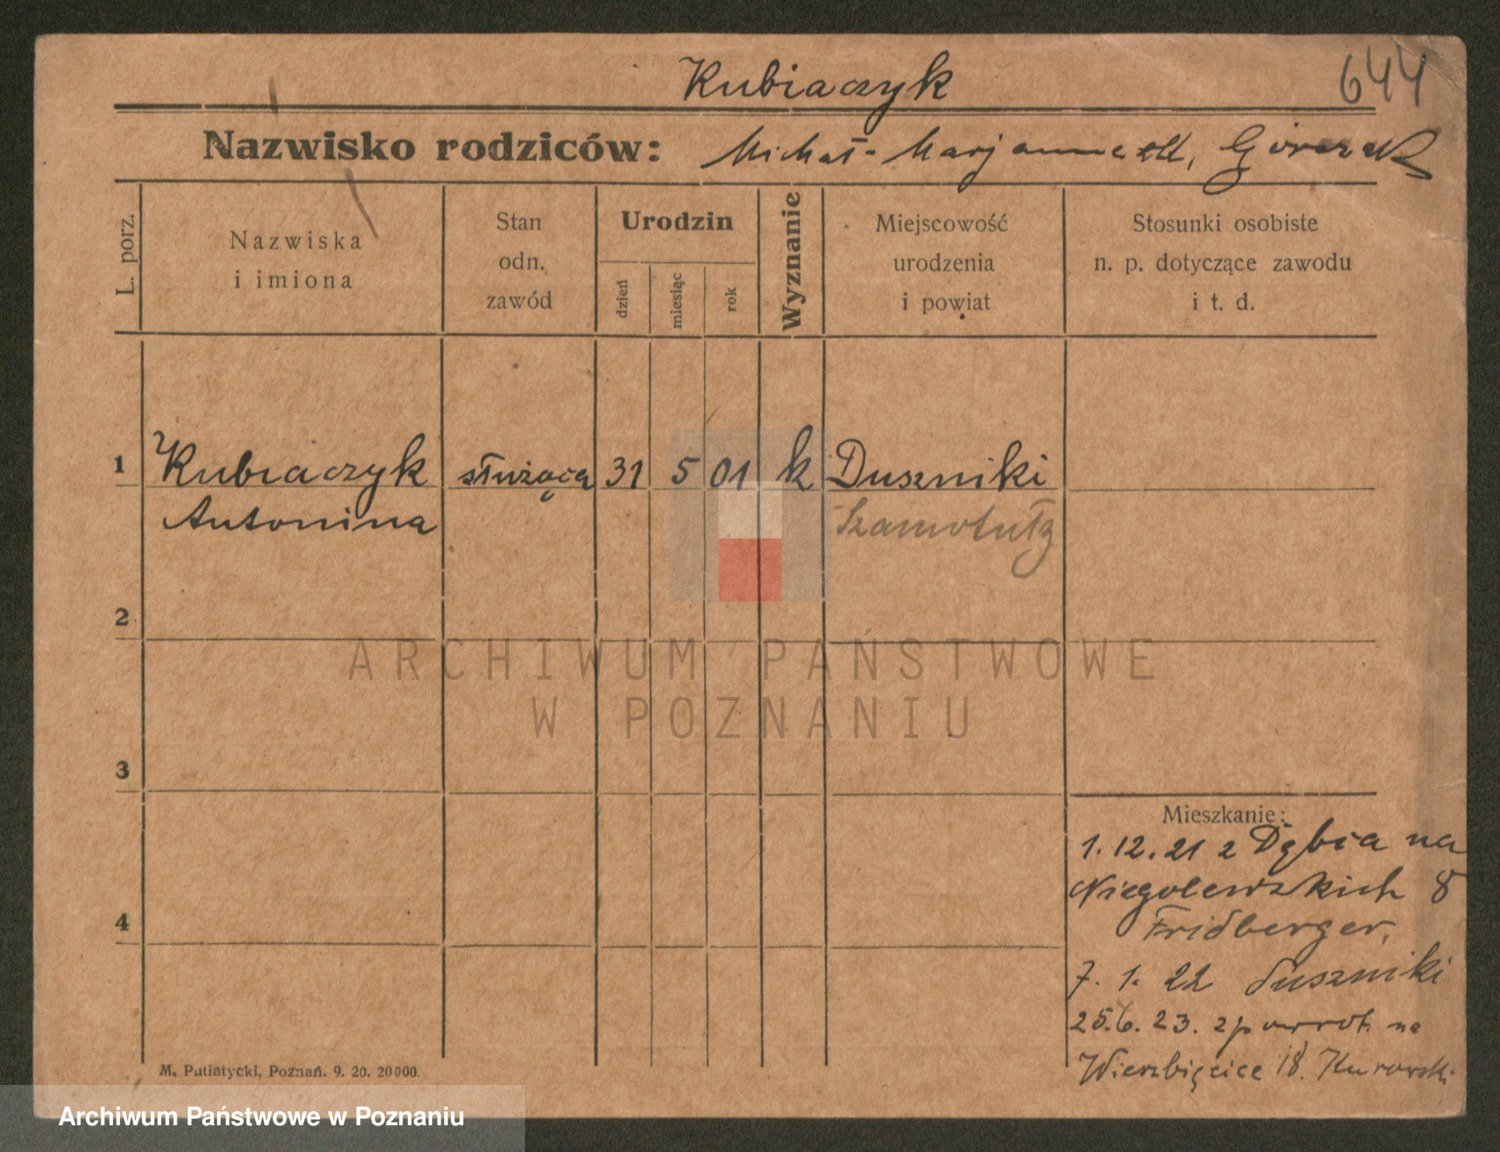 Kubiaczyk
644
Nazwisko rodziców: Michał - Marjanna
L. porz.
Nazwiska
i imiona
Stan
odn.
zawód
Urodzin
dzień
miesiąc
rok
Wyznanie
Miejscowość
urodzenia
i powiat
Stosunki osobiste
n. p. dotyczące zawodu
i t. d.
1 Kubiaczyk służąca 31 5 01 k Duszniki
Antonina Szamotuły
2
ARCHIWUM PAŃSTWOWE
W POZNANIU
3
Mieszkanie:
1.12.21 z Dębia na
4 Niegolewskich 8
Fridberger,
7. 1. 22 Duszniki
25.6. 23. zpowrot. na
Wierzbięcice 18. Kurowski
M. Putiatycki, Poznań. 9. 20. 20000.
Archiwum Państwowe w Poznaniu